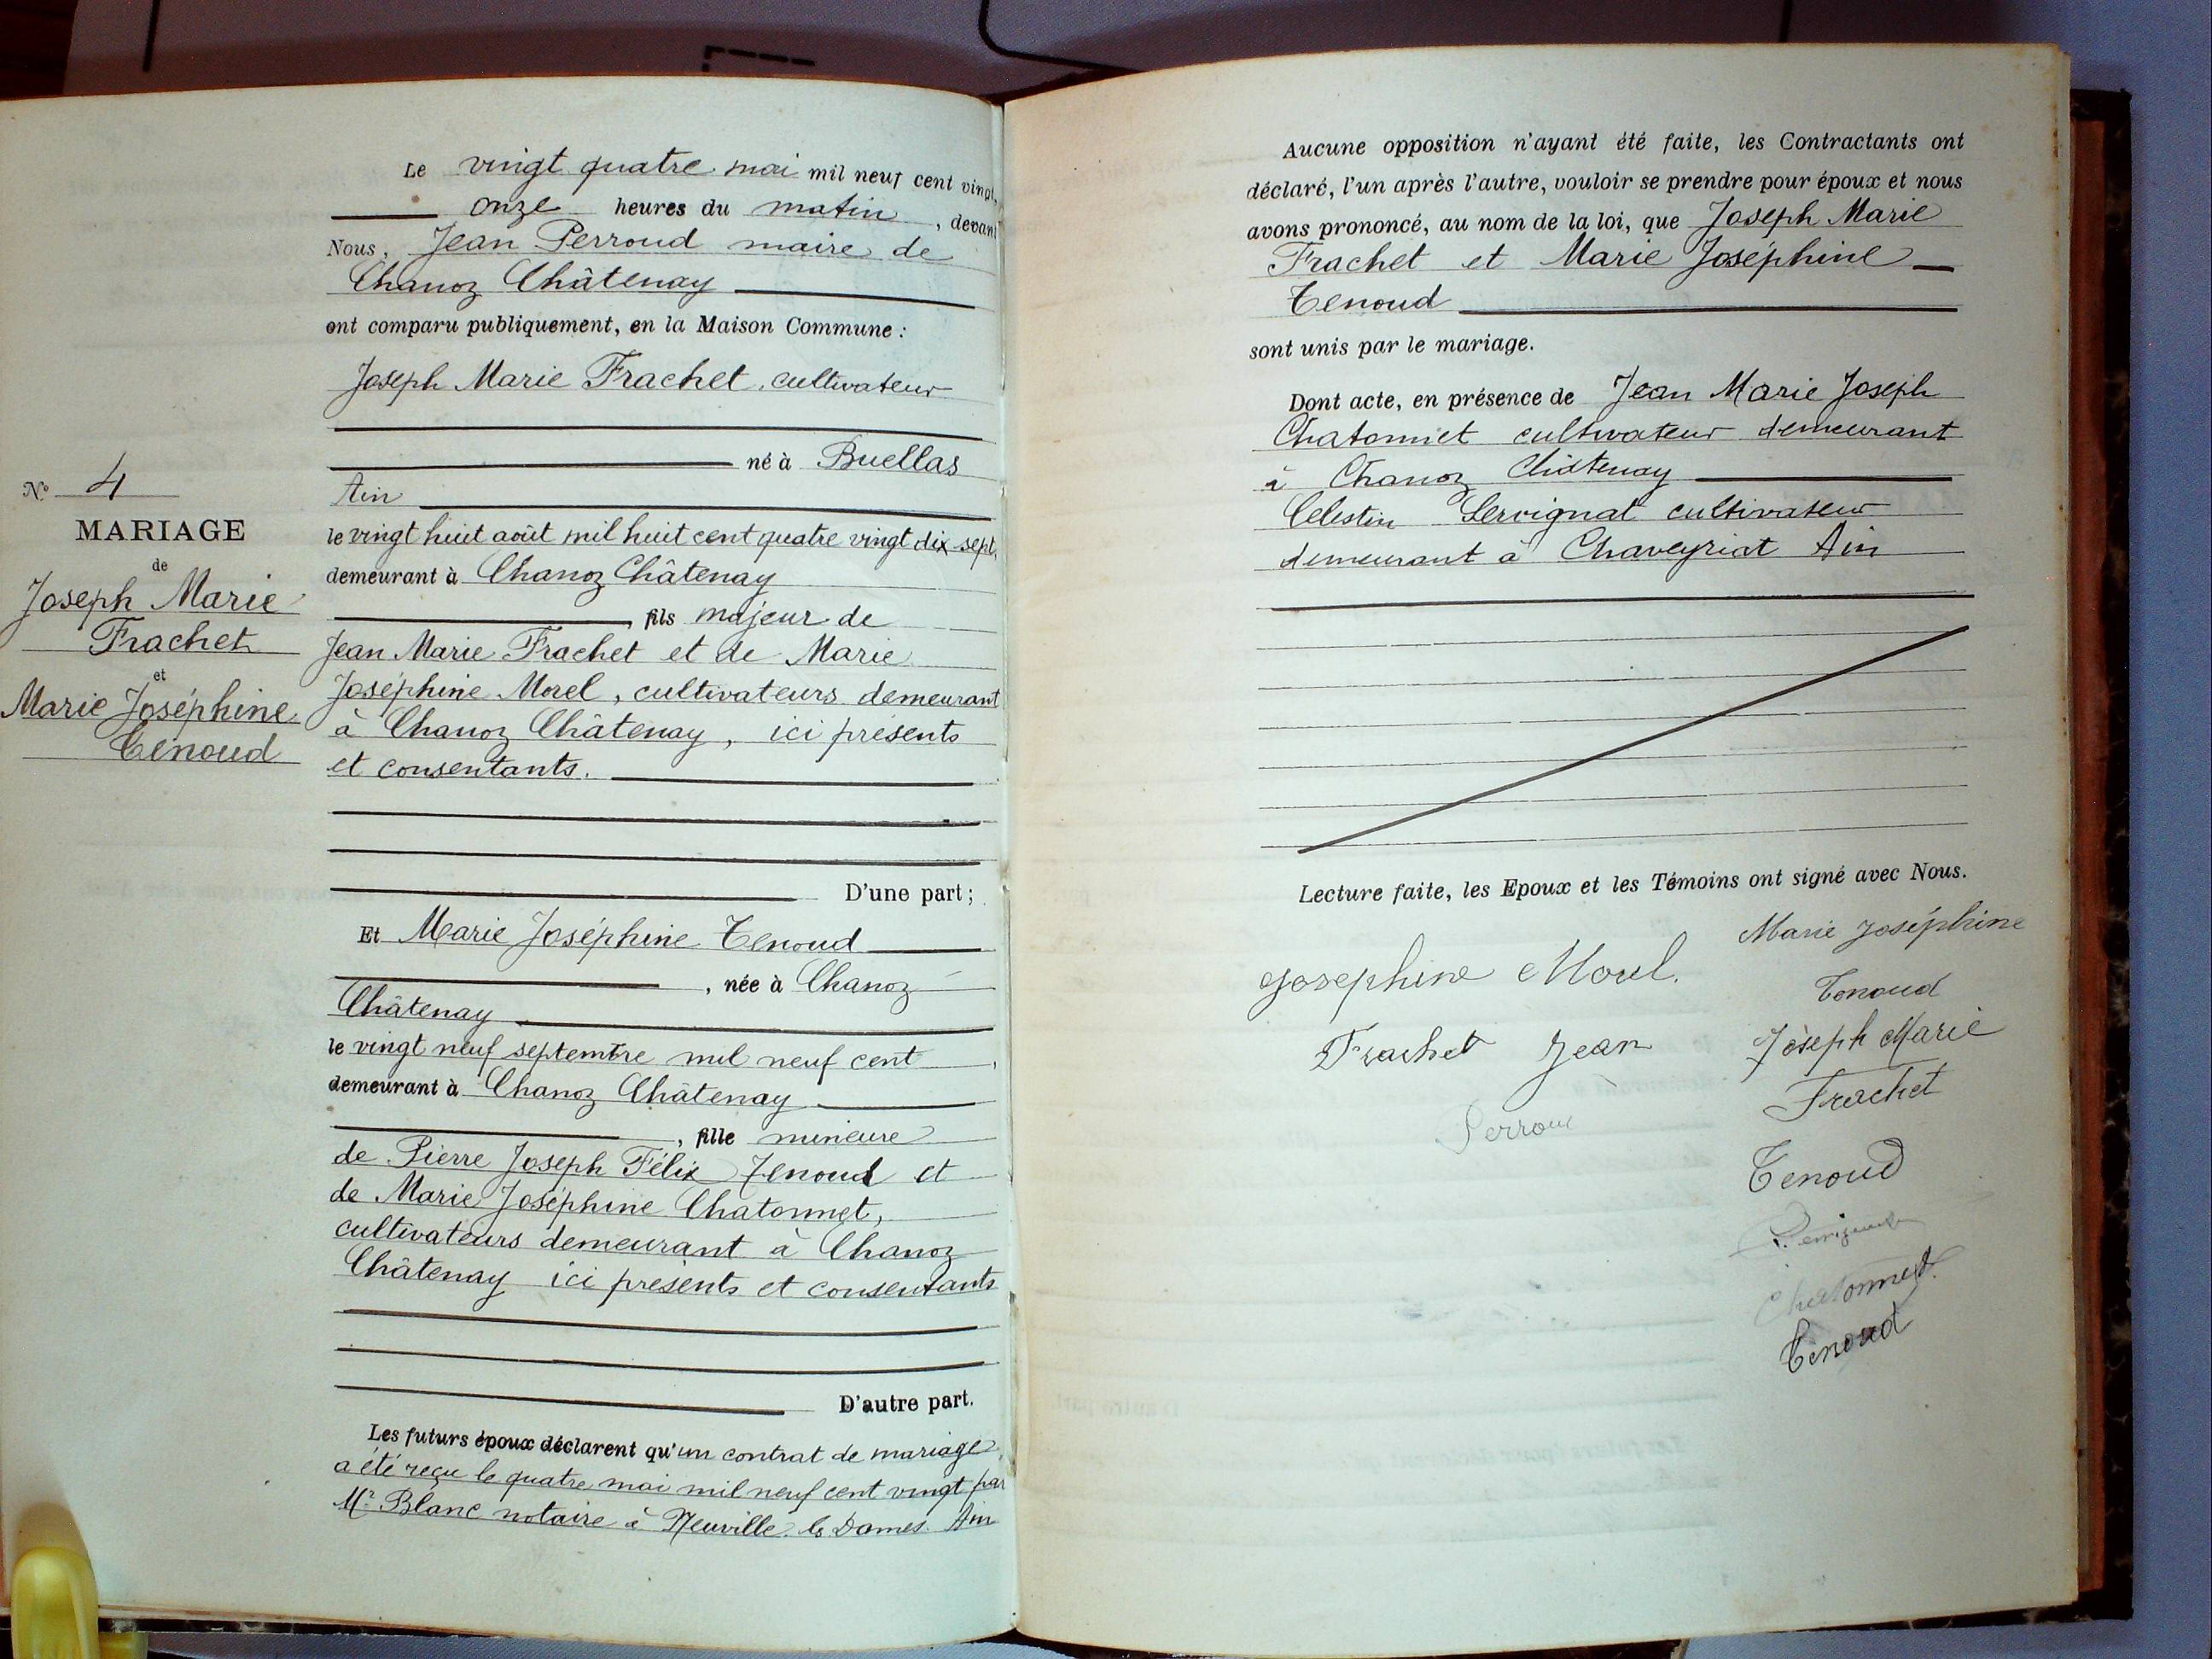 Le vingt quatre mai mil neuf cent vingt,
onze heures du matin, devant
Nous, Jean Perroud maire de
Chanoz Châtenay
ont comparu publiquement, en la Maison Commune :
Joseph Marie Frachet, cultivateur
né à Buellas
Ain
le vingt huit août mil huit cent quatre vingt dix-sept,
demeurant à Chanoz Châtenay
, fils majeur de
Jean Marie Frachet et de Marie
Joséphine Morel, cultivateurs demeurant
à Chanoz Châtenay, ici présents
et consentants.
D'une part ;
Et Marie Joséphine Tenoud
, née à Chanoz
Châtenay
le vingt neuf septembre mil neuf cent,
demeurant à Chanoz Châtenay
, fille mineure
de Pierre Joseph Félix Tenoud et
de Marie Joséphine Chatonnet,
cultivateurs demeurant à Chanoz
Châtenay ici présents et consentants
D'autre part.
Les futurs époux déclarent qu'un contrat de mariage
a été reçu le quatre mai mil neuf cent vingt par
Me Blanc notaire à Neuville les Dames. Ain
N° 4
MARIAGE
de
Joseph Marie
Frachet
et
Marie Joséphine
Tenoud
Aucune opposition n'ayant été faite, les Contractants ont
déclaré, l'un après l'autre, vouloir se prendre pour époux et nous
avons prononcé, au nom de la loi, que Joseph Marie
Frachet et Marie Joséphine
Tenoud
sont unis par le mariage.
Dont acte, en présence de Jean Marie Joseph
Chatonnet cultivateur demeurant
à Chanoz Châtenay
Celestin Servignat cultivateur
demeurant à Chaveyriat Ain
Lecture faite, les Epoux et les Témoins ont signé avec Nous.
Marie Joséphine
Tenoud
Josephine Morel.
Joseph Marie
Frachet
Frachet Jean
Perroud
Tenoud
Chatonnet
Tenoud